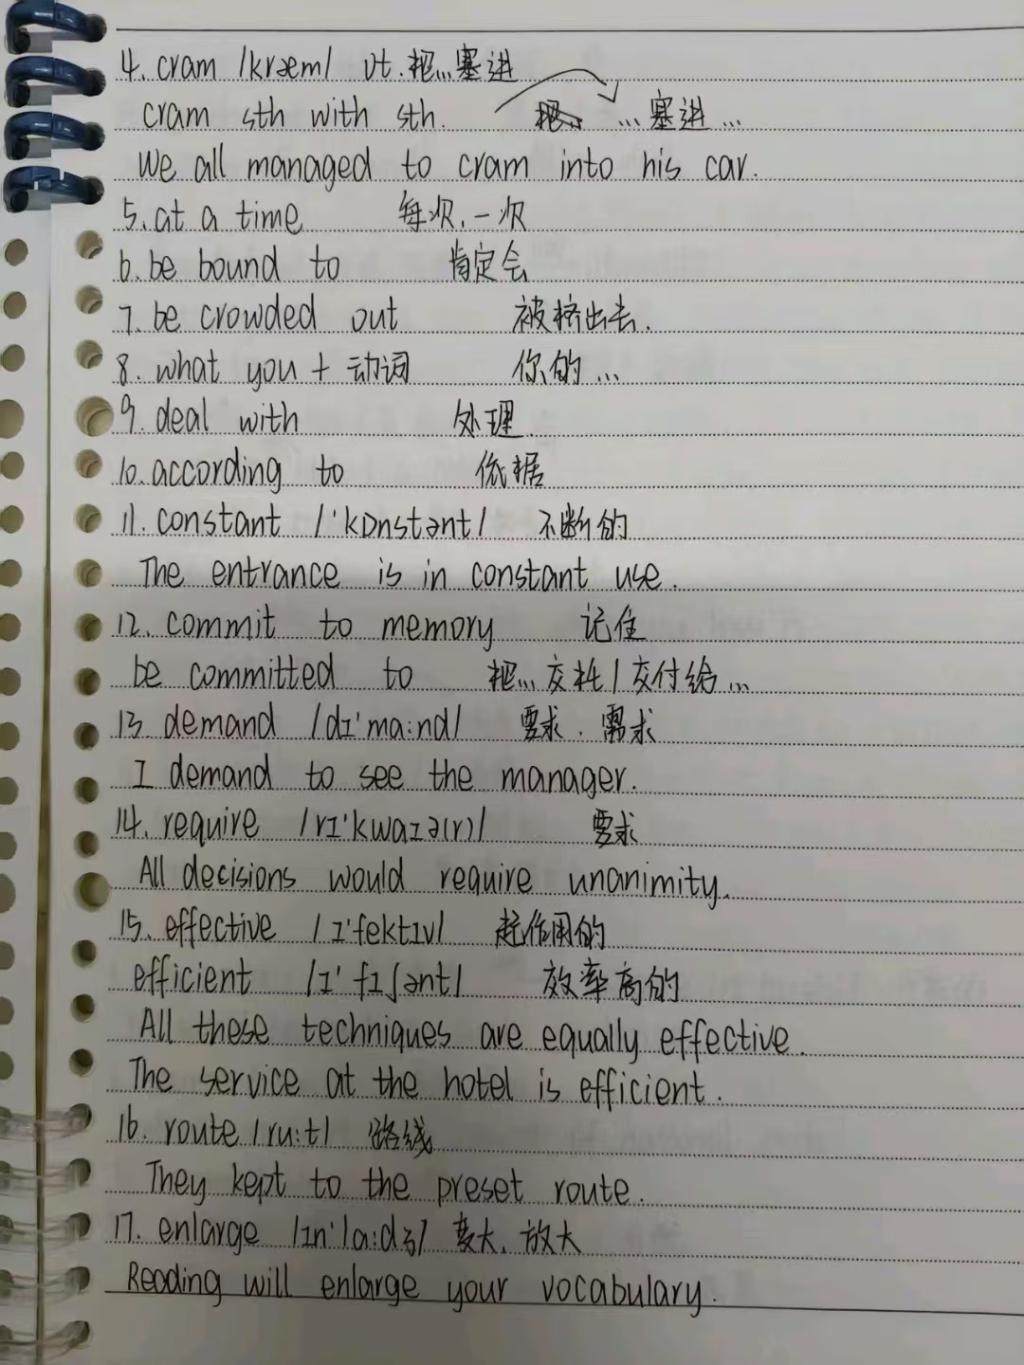 4. cram /kræm/ vt. 把...塞进
cram sth with sth. ...塞进...
We all managed to cram into his car.
5. at a time 每次,一次
6. be bound to 肯定会
7. be crowded out 被挤出去.
8. what you + 动词 你的...
9. deal with 处理
10. according to 依据
11. constant /'kɒnstənt/ 不断的
The entrance is in constant use.
12. commit to memory 记住
be committed to 把...交托/交付给...
13. demand /dɪ'ma:nd/ 要求、需求
I demand to see the manager.
14. require /rɪ'kwaɪə(r)/ 要求
All decisions would require unanimity.
15. effective /ɪ'fektɪv/ 起作用的
efficient /ɪ'fɪʃənt/ 效率高的
All these techniques are equally effective.
The service at the hotel is efficient.
16. route /ru:t/ 路线
They kept to the preset route.
17. enlarge /ɪn'la:dʒ/ 变大、放大
Reading will enlarge your vocabulary.